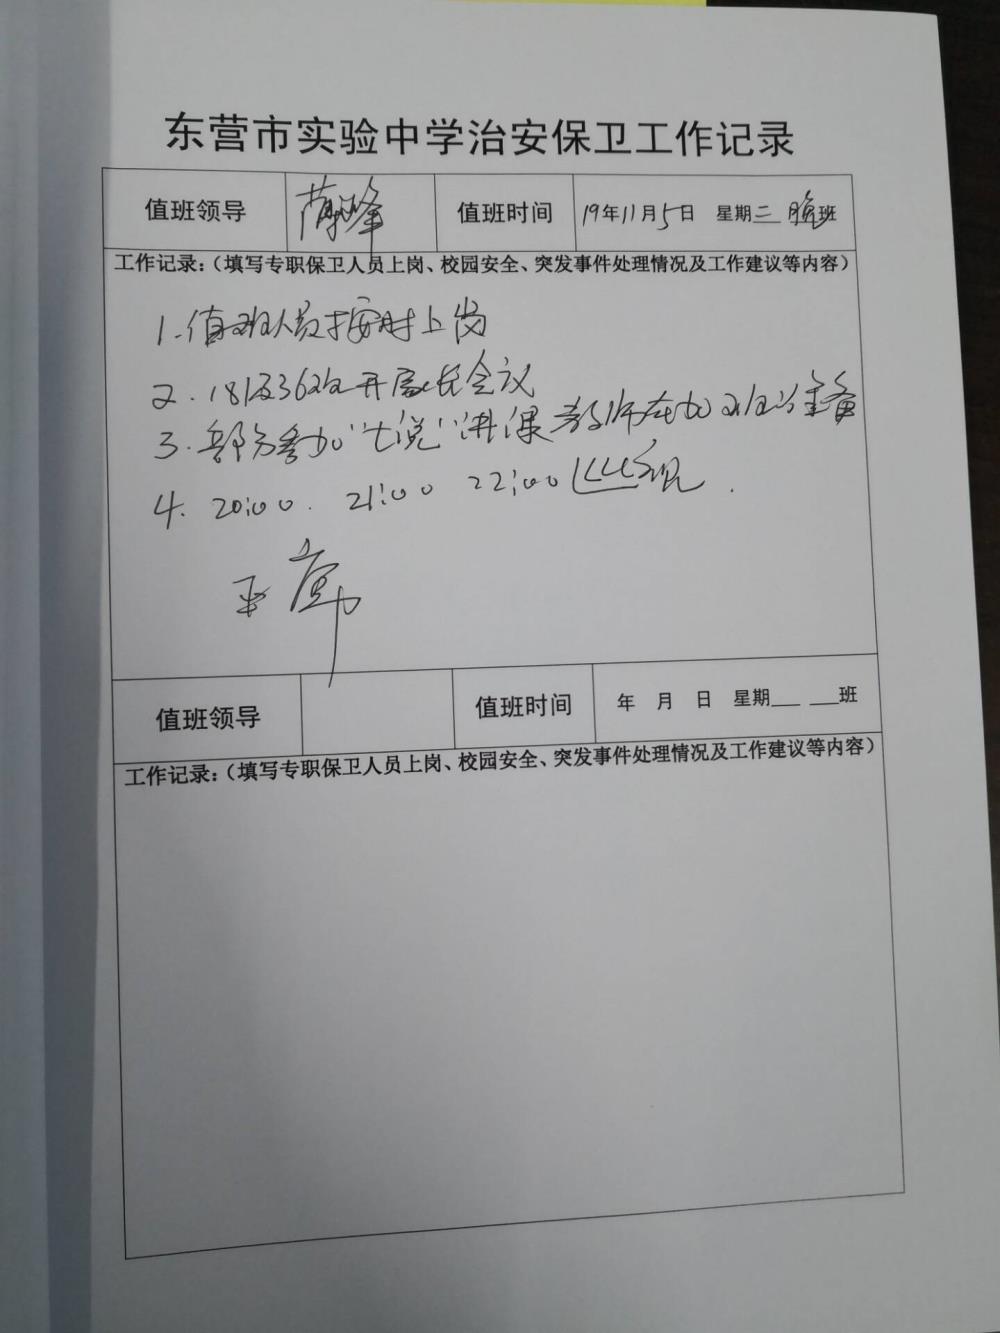 东营市实验中学治安保卫工作记录
值班领导 薄峰 值班时间 19年11月5日 星期二 晚班
工作记录：（填写专职保卫人员上岗、校园安全、突发事件处理情况及工作建议等内容）
1.值班人员按时上岗
2.18级36班开家长会议
3.部分参加“七说”讲课教师在加班准备
4.20:00.21:00 22:00巡视.
值班领导 值班时间 年 月 日 星期___ ___班
工作记录：（填写专职保卫人员上岗、校园安全、突发事件处理情况及工作建议等内容）